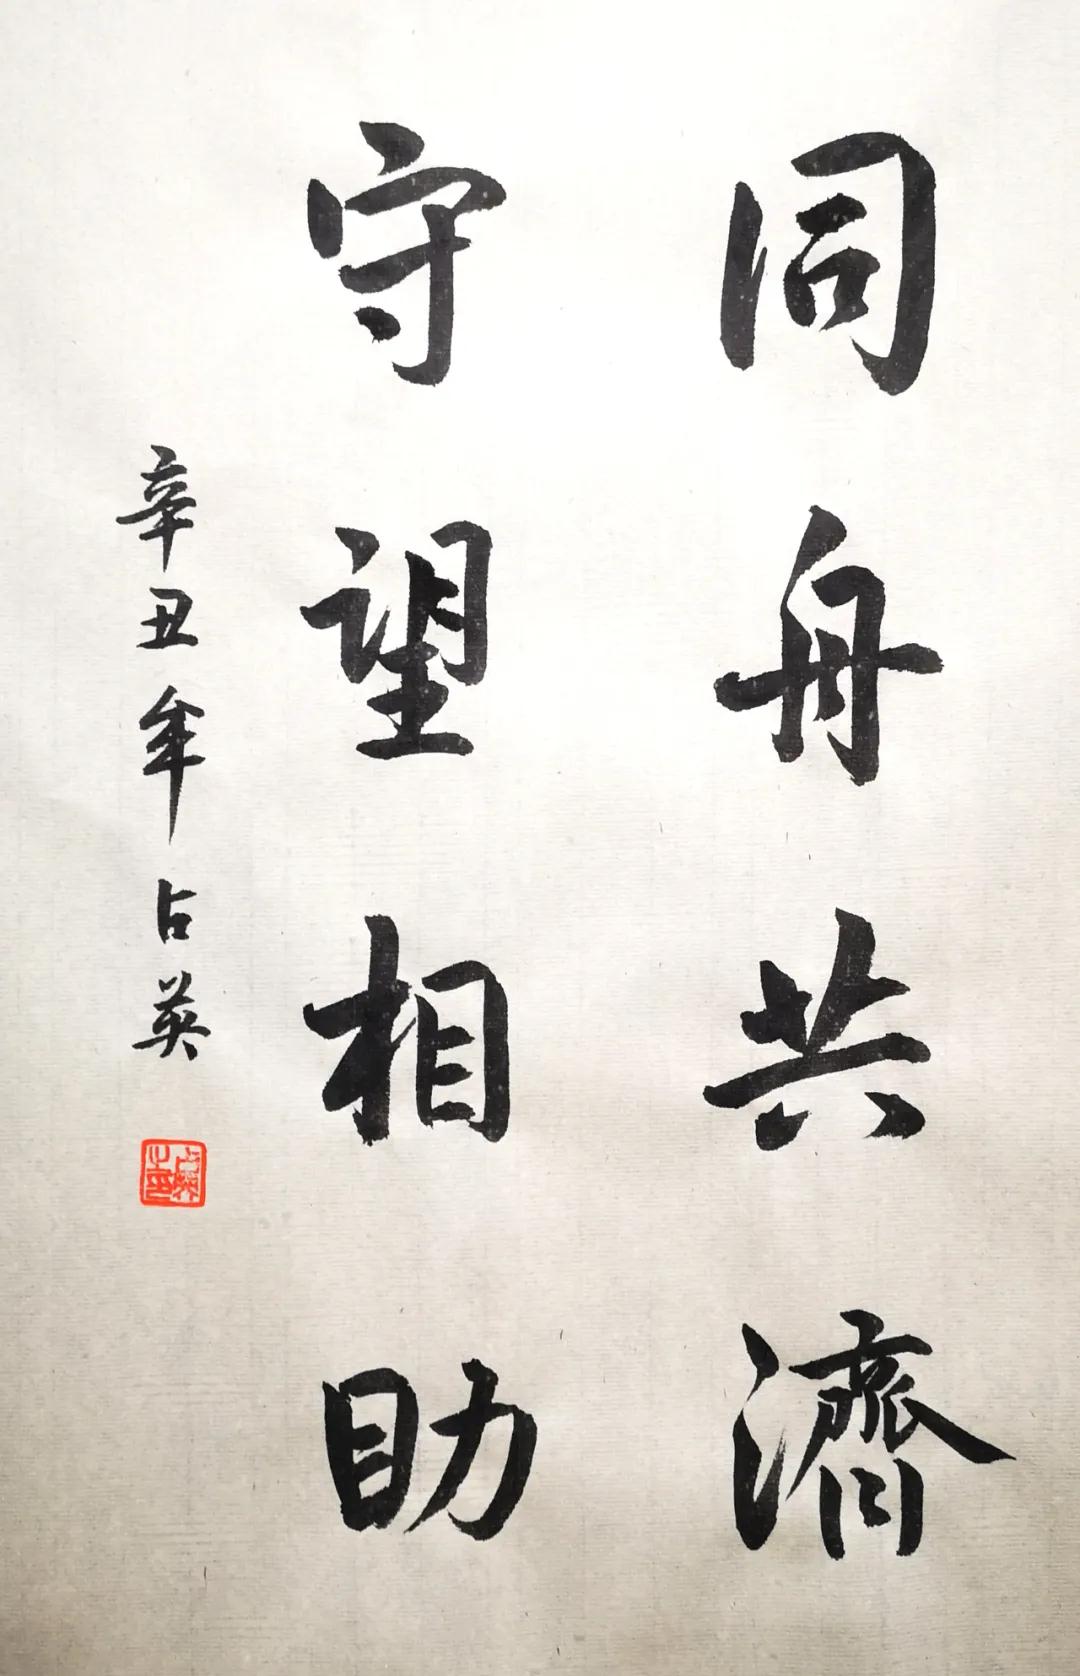 同舟共濟
守望相助
辛丑年占英